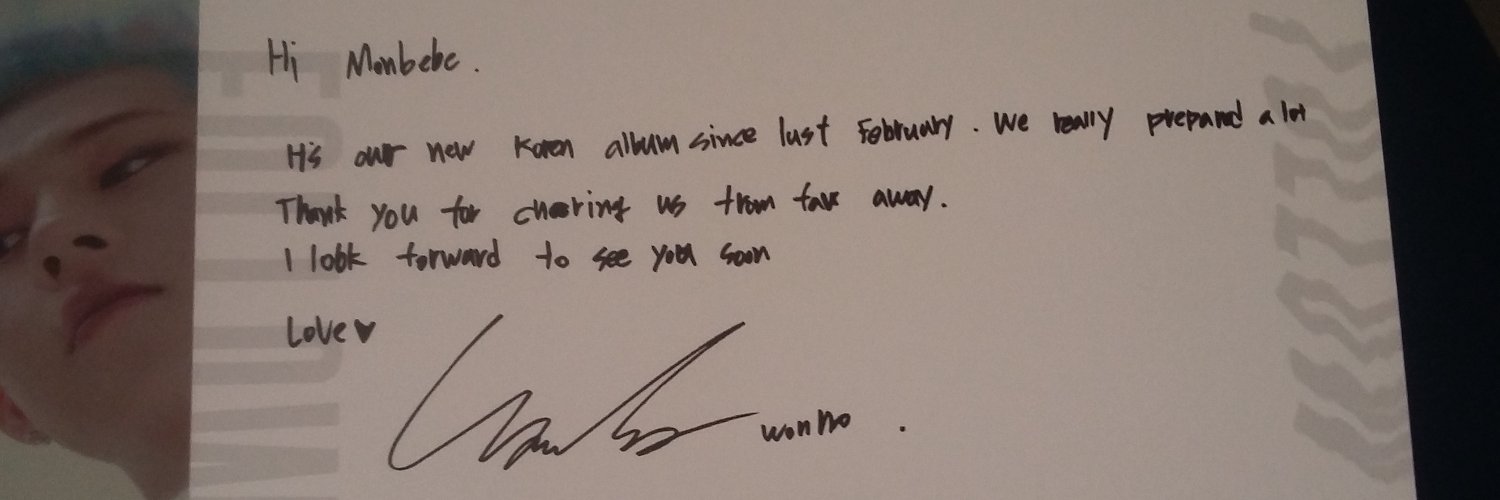 Hi Monbebe.
It's our new Korean album since last February. We really prepared a lot
Thank you for cheering us from far away.
I look forward to see you soon
Love♥
wonho.